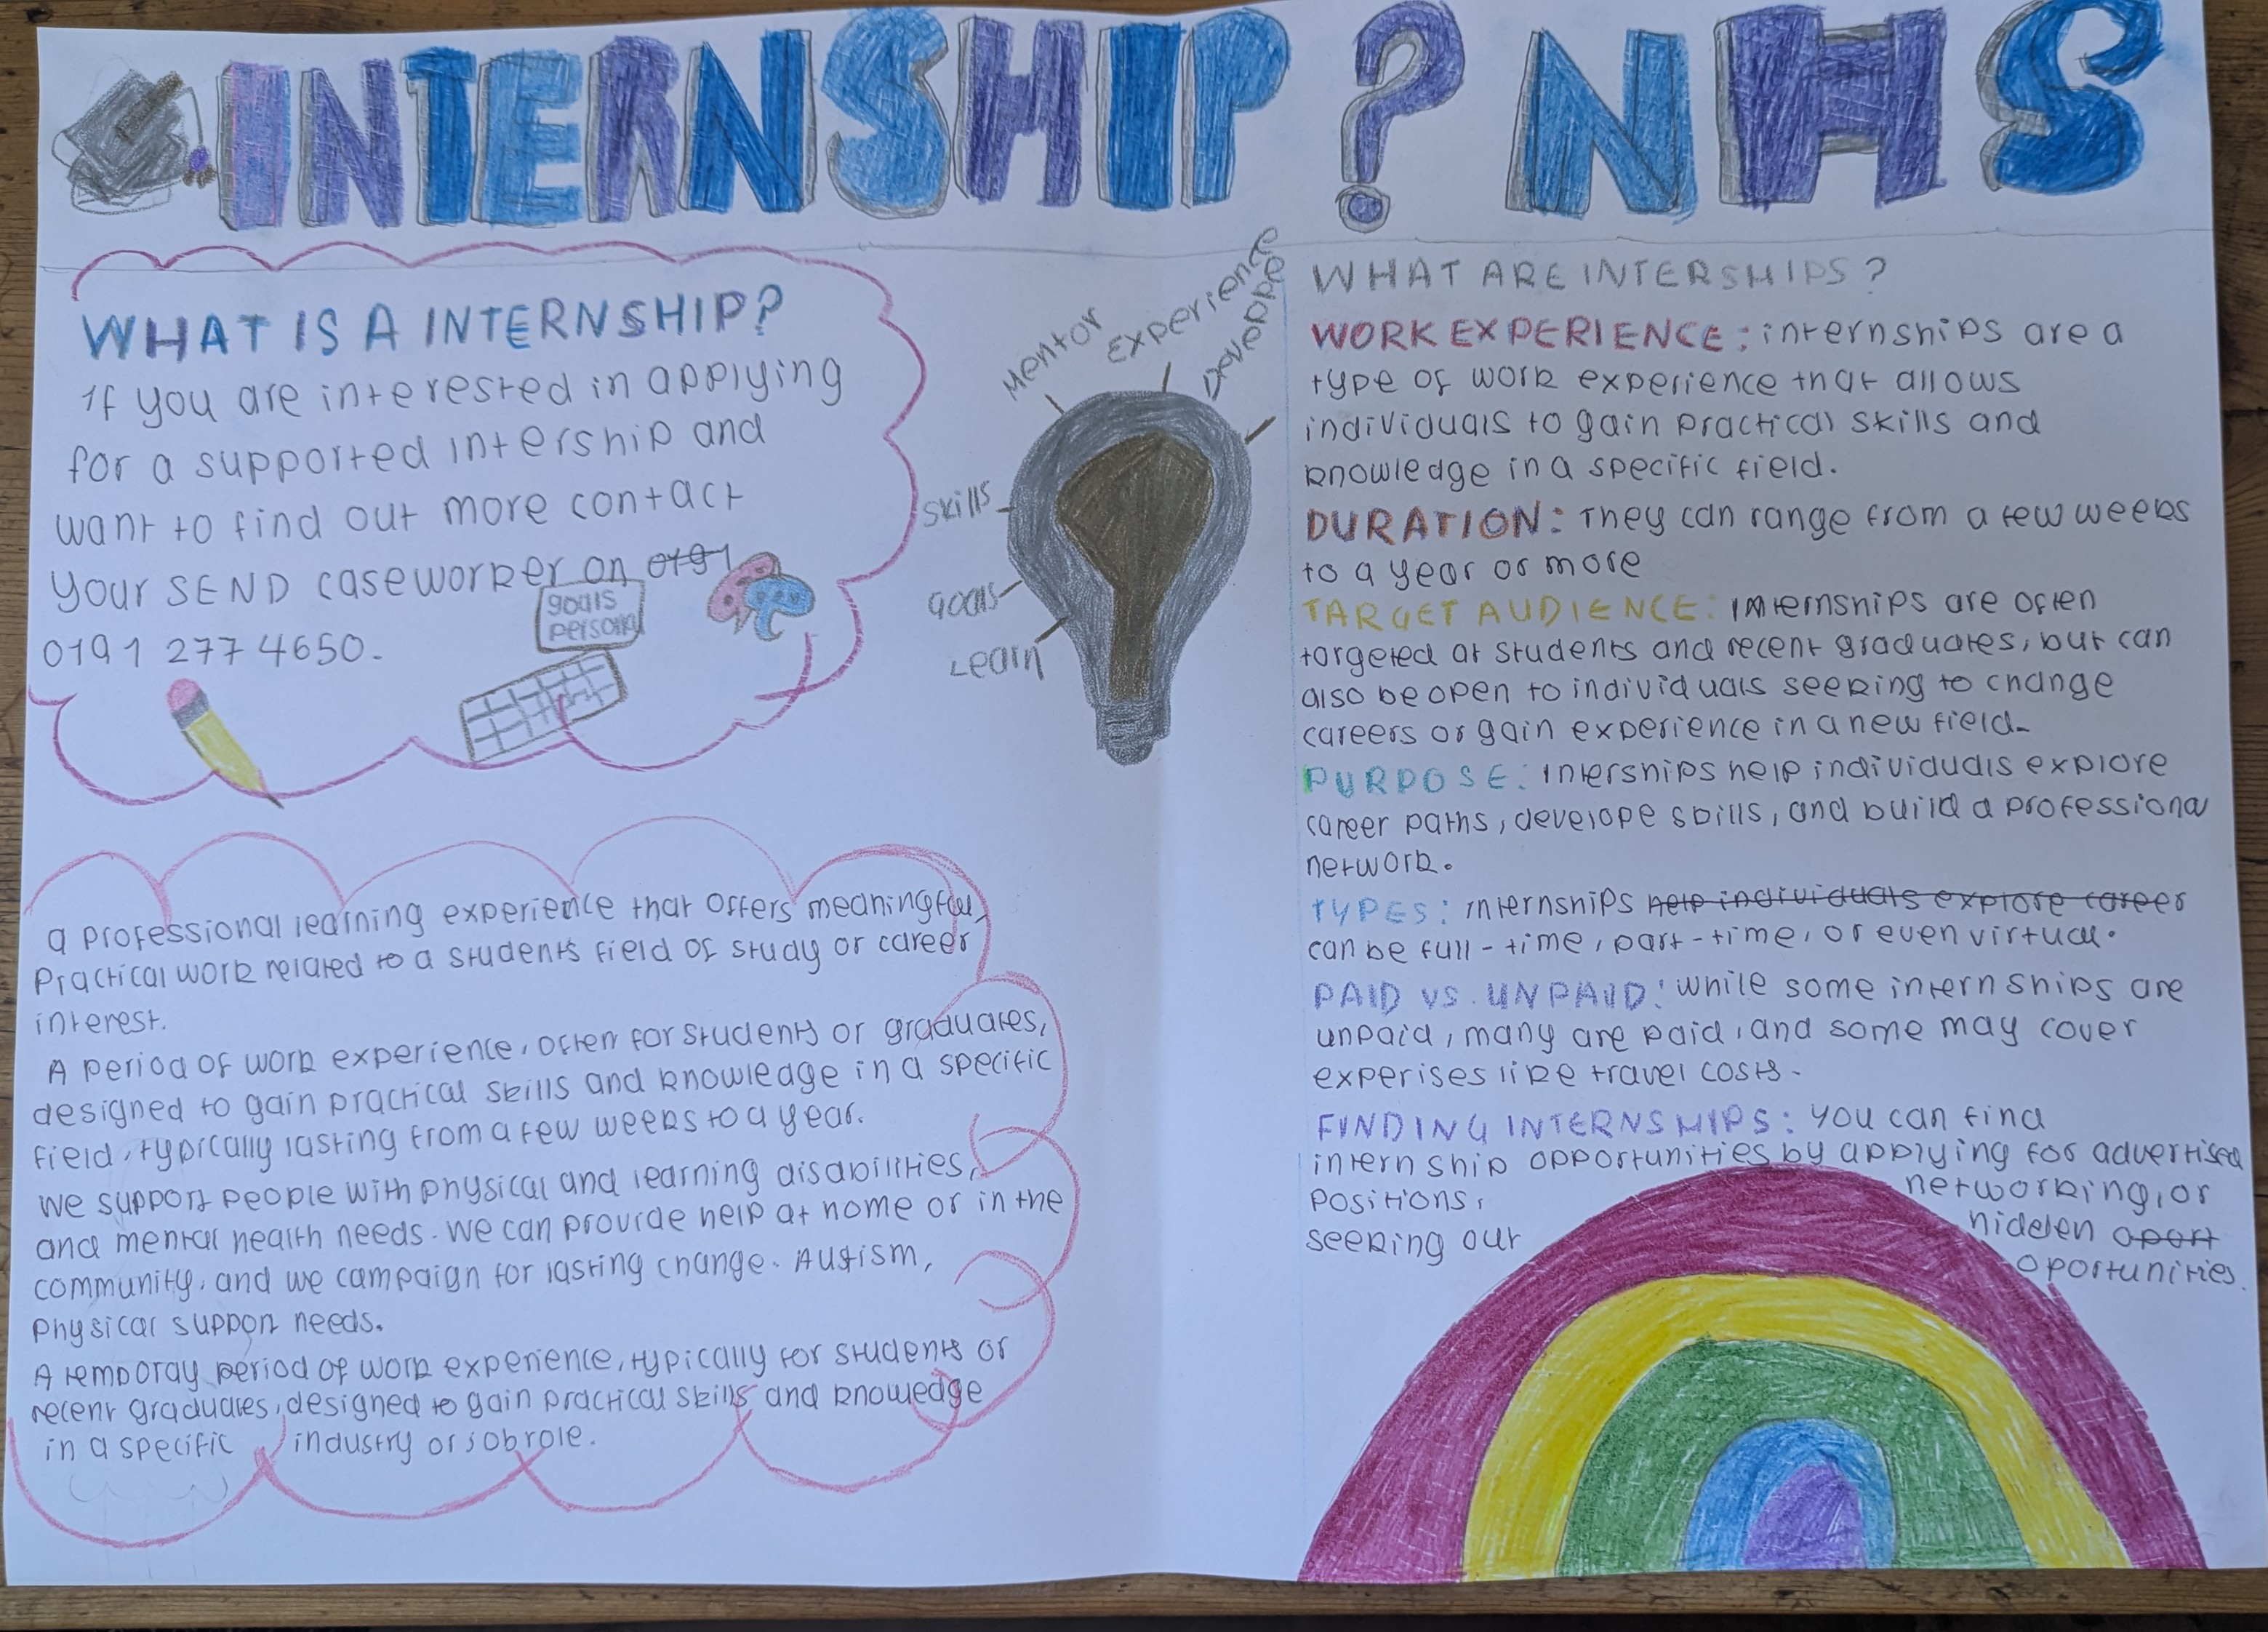 INTERNSHIP ? NHS
WHAT IS A INTERNSHIP?
If you are interested in applying
for a supported intership and
want to find out more contact
your SEND caseworker on 0191
0191 277 4650.
goals
personal
Mentor
Experience
Develope
skills
goals
Learn
a professional learning experience that offers meaningful,
practical work related to a student's field of study or career
interest.
A period of work experience, often for students or graduates,
designed to gain practical skills and knowledge in a specific
field, typically lasting from a few weeks to a year.
We support people with physical and learning disabilities,
and mental health needs. We can provide help at home or in the
community, and we campaign for lasting change. Autism,
physical support needs.
A temporay period of work experience, typically for students or
recent graduates, designed to gain practical skills and knowledge
in a specific industry or job role.
WHAT ARE INTERSHIPS?
WORK EXPERIENCE: internships are a
type of work experience that allows
individuals to gain practical skills and
knowledge in a specific field.
DURATION: They can range from a few weeks
to a year or more
TARGET AUDIENCE: Internships are often
targeted at students and recent graduates, but can
also be open to individuals seeking to change
careers or gain experience in a new field.
PURPOSE: Interships help individuals explore
career paths, develope skills, and build a professional
network.
TYPES: internships help individuals explore career
can be full-time, part-time, or even virtual.
PAID VS. UNPAID: while some internships are
unpaid, many are paid, and some may cover
experises like travel costs.
FINDING INTERNSHIPS: you can find
internship opportunities by applying for advertised
positions, networking, or
seeking out hidden oport
oportunities.